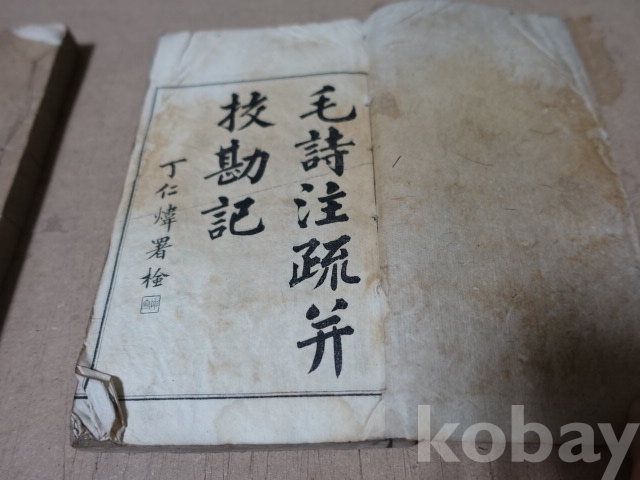 毛詩注疏并
挍勘記
丁仁煒署检
kobay